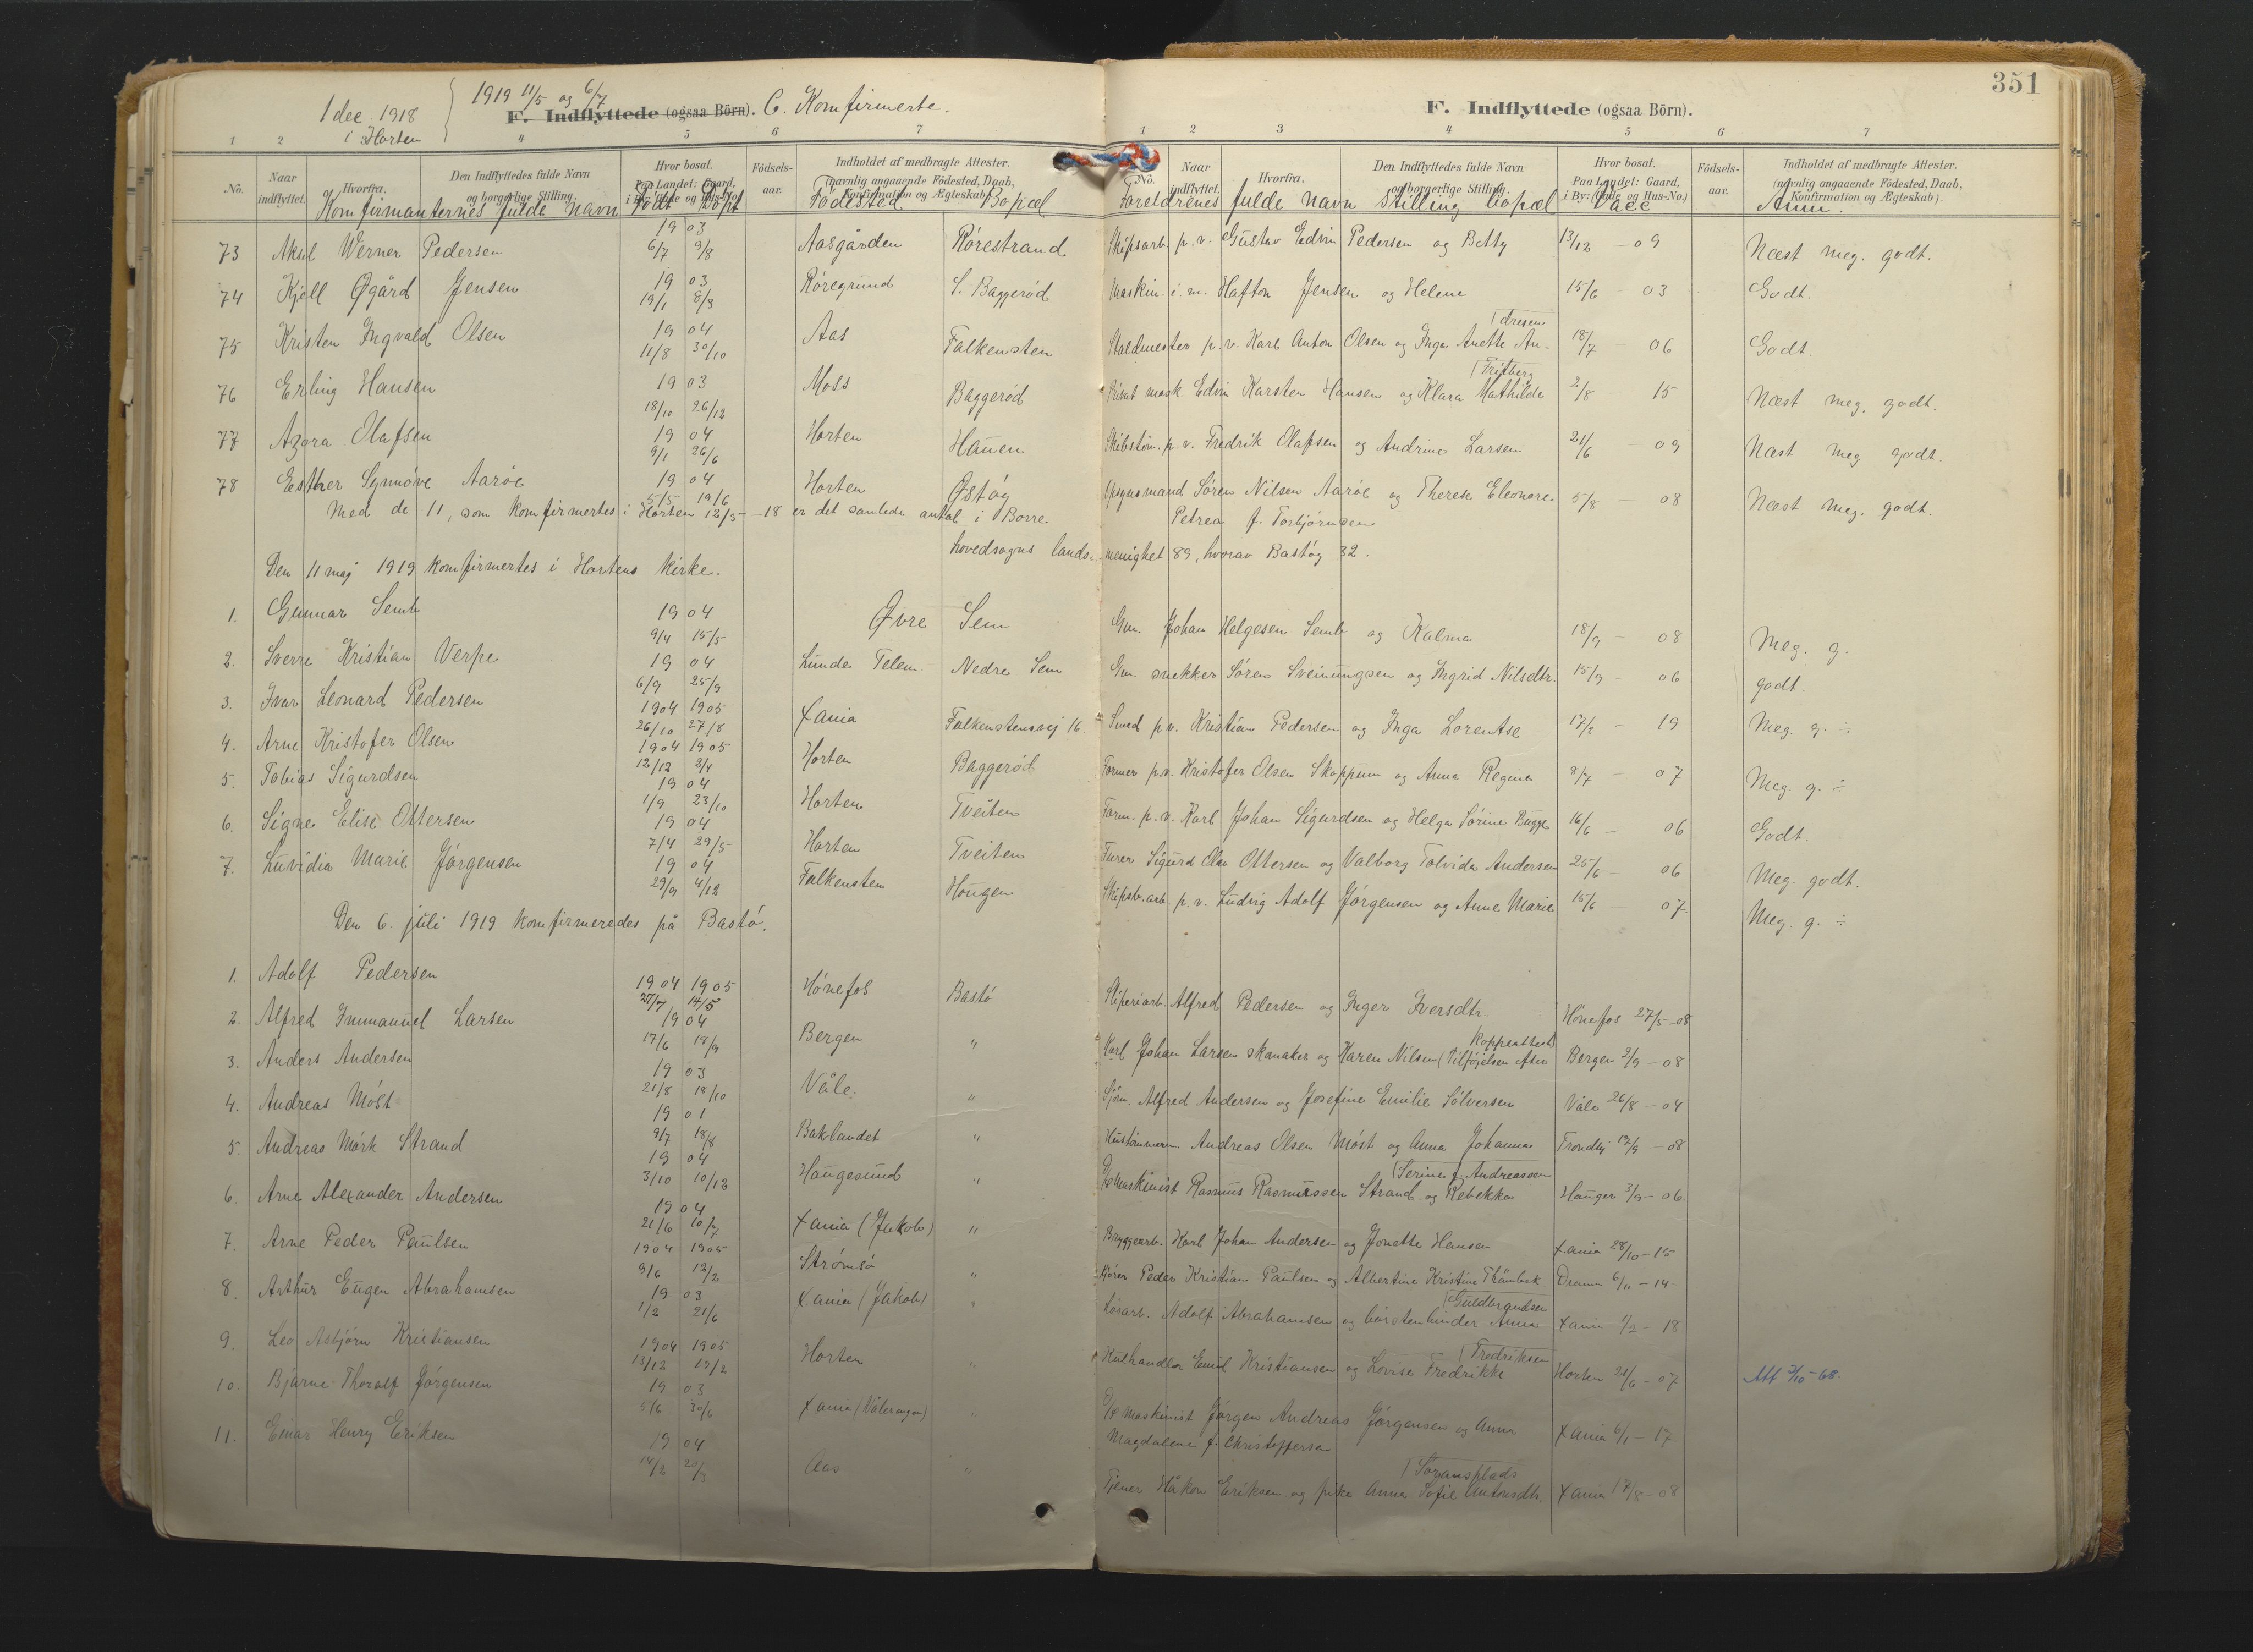 351
1 dec. 1918 i Horten
1919 11/5 og 6/7
F. Indflyttede (ogsaa Börn). C. Konfirmerte.
1 2 3 4 5 6 7
No. Naar indflyttet. Hvorfra. Den Indflyttedes fulde Navn og borgerlige Stilling. Hvor bosat. Paa Landet: Gaard, i By: (Gade og Hus-No.) Födsels-aar. Indholdet af medbragte Attester. (navnlig angaaende Födested, Daab, Konfirmation og Ægteskab).
Konfirmanternes fulde navn Født Døpt Fødested Bopæl
F. Indflyttede (ogsaa Börn).
1 2 3 4 5 6 7
No. Naar indflyttet. Hvorfra. Den Indflyttedes fulde Navn og borgerlige Stilling. Hvor bosat. Paa Landet: Gaard, i By: (Gade og Hus-No.) Födsels-aar. Indholdet af medbragte Attester. (navnlig angaaende Födested, Daab, Konfirmation og Ægteskab).
Foreldrenes fulde navn stilling bopæl Vacc Anm.
73 Aksel Werner Pedersen 1903 6/7 9/8 Aasgården Rørestrand Skipsarb. p.v. Gustav Edvin Pedersen og Betty 13/12 - 09 Næst meg. godt.
74 Kjell Øgård Jensen 1903 19/1 8/3 Røregrund S. Baggerød Maskin. i. m. Hafton Jensen og Helene 15/6 - 03 Godt.
75 Kristen Ingvald Olsen 1904 11/8 30/10 Aas Falkensten Staldmester p.v. Karl Anton Olsen og Inga Anette Andresen 18/7 - 06 Godt.
76 Erling Hansen 1903 18/10 26/12 Moss Baggerød mask. Edvin Karsten Hansen og Klara Mathilde 2/8 - 15 Næst meg. godt.
77 Azora Olafsen 1904 9/1 26/6 Horten Hauen Skibstøm. p.v. Fredrik Olafsen og Andrine Larsen 21/6 - 09 Næst meg godt.
78 Esther Synnøve Aarøe 1904 5/5 19/6 Horten Østøy Opsynsmand Søren Nilsen Aarøe og Therese Eleonore 5/8 - 08 Næst meg. godt.
Petrea f. Torbjørnsen
Med de 11, som konfirmertes i Horten 12/5 - 18 er det samlede antal i Borre
hovedsogns landsmenighet 89, hvorav Bastøy 32.
Den 11 maj 1919 konfirmertes i Hortens kirke.
1. Gunnar Semb 1904 9/4 15/5 Øvre Sem Gm. Johan Helgesen Semb og Kalma 18/9 - 08 Meg. g.
2. Sverre Kristian Verpe 1904 6/9 25/9 Lunde Telem. Nedre Sem Gm. snekker Søren Sveinungsen og Ingrid Nilsdtr. 15/9 - 06 godt.
3. Ivar Leonard Pedersen 1904 1905 26/10 27/8 Xania Falkenstensvej 16 Smed p.v. Kristian Pedersen og Inga Lorentse 17/2 - 19 Meg. g. ÷
4. Arne Kristofer Olsen 1904 1905 12/12 2/4 Horten Baggerød Former p.v. Kristofer Olsen Skoppum og Anna Regine 8/7 - 07 Meg. g. ÷
5. Tobias Sigurdsen 1904 1/9 23/10 Horten Tveiten Form. p.v. Karl Johan Sigurdsen og Helga Sørine Bugge 16/6 - 06 Godt.
6. Signe Elise Ottersen 1904 7/4 29/5 Horten Tveiten Furer Sigurd Olav Ottersen og Valborg Tolvida Andersen 25/6 - 06 Meg. godt.
7. Luvidia Marie Jørgensen 1904 29/9 4/12 Falkensten Hougen Skipsb.arb. p.v. Ludvig Adolf Jørgensen og Anne Marie 15/6 - 07. Meg. g. ÷
Den 6. juli 1919 konfirmeredes på Bastø.
1. Adolf Pedersen 1904 1905 27/7 14/5 Hønefos Bastø Sliperiarb. Alfred Pedersen og Inger Iversdtr. Hønefos 27/5 - 08
2. Alfred Immanuel Larsen 1904 17/6 18/9 Bergen " Karl Johan Larsen skomaker og Karen Nilsen (Tilføielsen efter koppeattest) Bergen 2/9 - 08
3. Anders Andersen 1903 21/8 18/10 Våle. " Sjøm. Alfred Andersen og Josefine Emilie Sølversen Våle 26/8 - 04
4. Andreas Møst 1901 9/7 18/8 Baklandet " Hustømmerm. Andreas Olsen Møst og Anna Johanna Trondhj 17/9 - 08
5. Andreas Mørk Strand 1904 3/10 10/12 Haugesund " Maskinist Rasmus Rasmussen Strand og Rebekka Serine f. Andreassen Hauger 3/9 - 06.
6. Arne Alexander Andersen 1904 21/6 10/7 Xania (Jakob) " Bryggearb. Karl Johan Andersen og Jonette Hansen Xania 28/10 - 15
7. Arne Peder Paulsen 1904 1905 9/6 12/2 Strømsø " Kjører Peder Kristian Paulsen og Albertine Kristine Dram 6/11 - 14
8. Arthur Eugen Abrahamsen 1903 1/2 21/6 Xania (Jakob) " Løsarb. Adolf Abrahamsen og børstenbinder Anna Guldbrandsen Xania 1/2 - 18
9. Leo Asbjørn Kristiansen 1904 1905 13/12 12/2 Horten " Kulhandler Emil Kristiansen og Lovise Fredrikke Fredriksen Horten 21/6 - 07 Att 2/10 - 68.
10. Bjarne Thoralf Jørgensen 1903 5/6 30/6 Xania (Vålerengen) " Maskinist Jørgen Andreas Jørgensen og Anna Xania 6/1 - 17
Magdalene f. Christoffersen
11. Einar Henry Eriksen 1904 14/2 20/3 Aas " Tjener Håkon Eriksen og pike Anna Sofie Antonsdtr. Xania 17/8 - 08